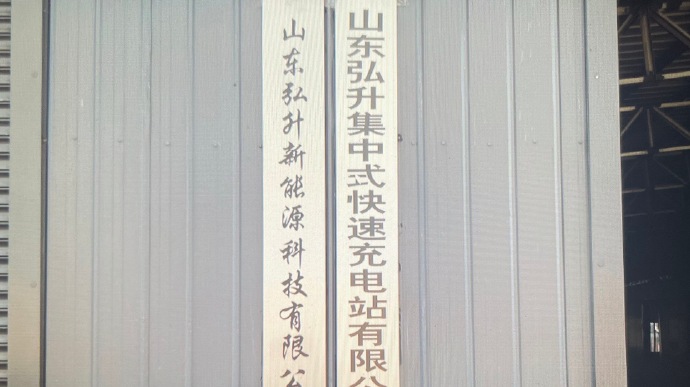 山东弘升集中式快速充电站有限公
山东弘升新能源科技有限公